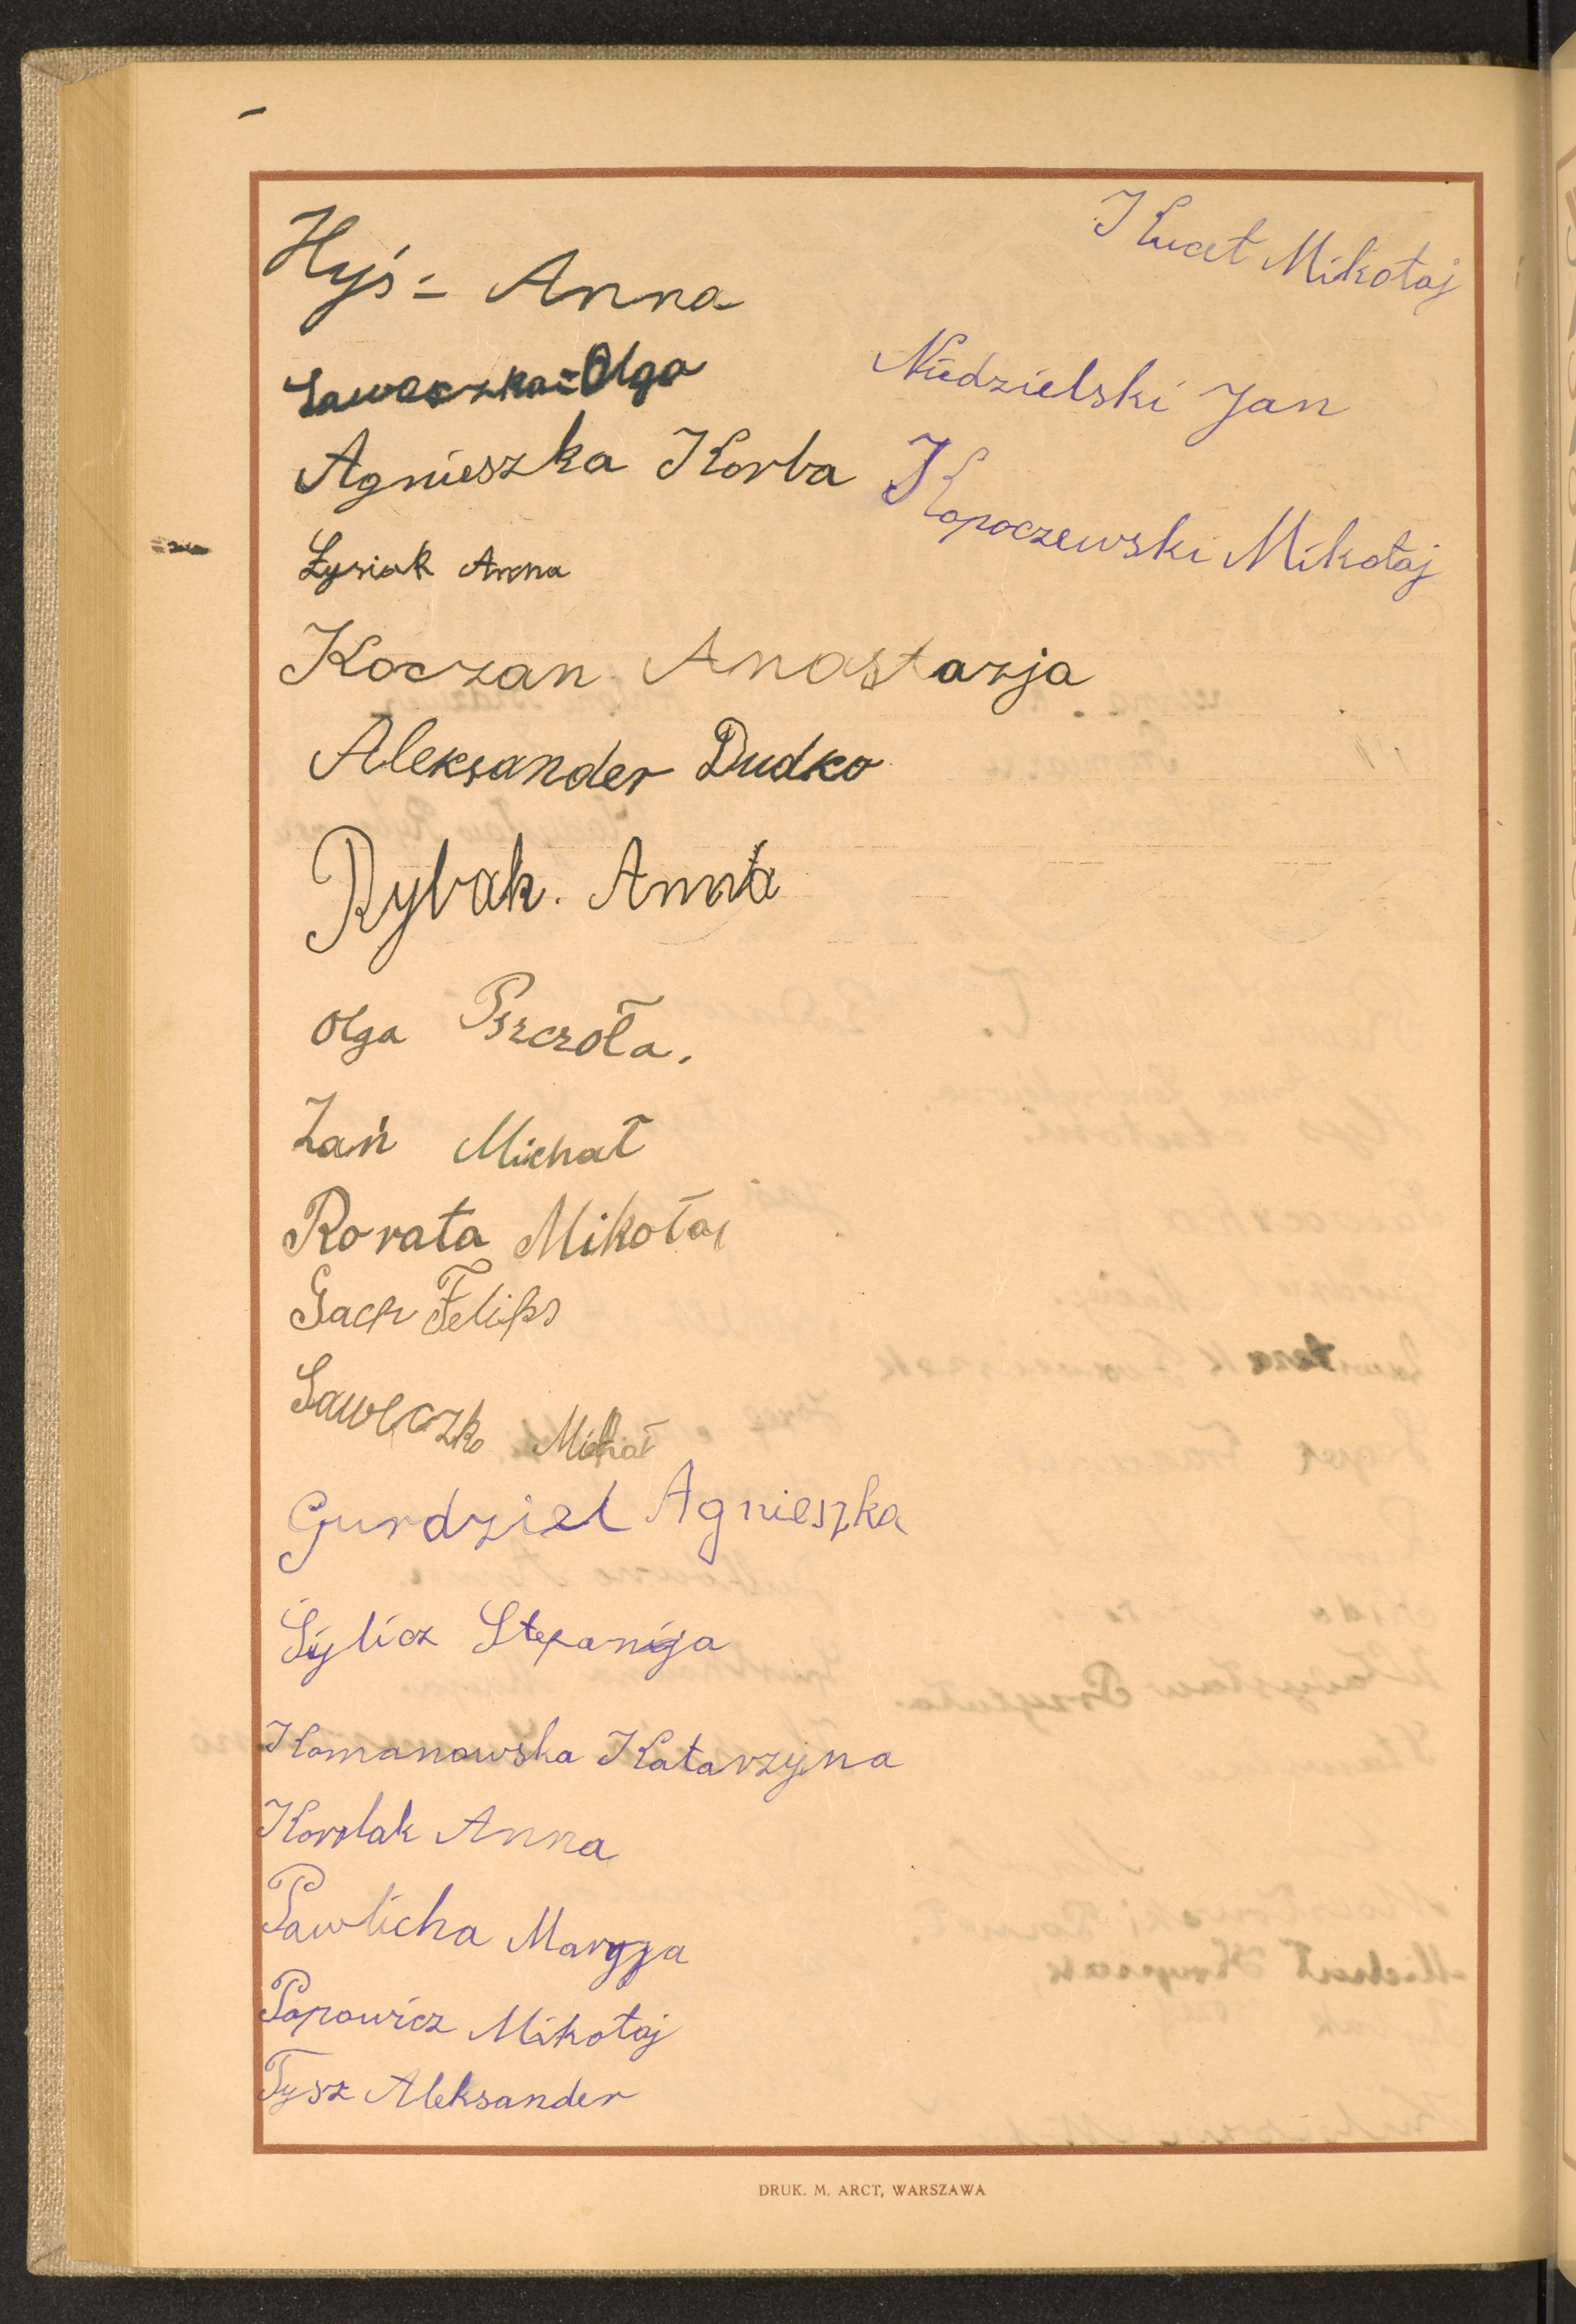 Hyś - Anna
Sawoczka - Olga
Agnieszka Korba
Łysiak Anna
Koczan Anastazja
Aleksander Dudko
Rybak. Anna
Olga Pszczoła.
Zań Michał
Rorata Mikołaj
Gach Feliks
Saweczko Michał
Gurdziel Agnieszka
Sylicz Stefanija
Komanowska Katarzyna
Korolak Anna
Pawlicha Maryja
Popowicz Mikołaj
Tysz Aleksander
Kucet Mikołaj
Niedzielski Jan
Kopoczewski Mikołaj
DRUK. M. ARCT, WARSZAWA